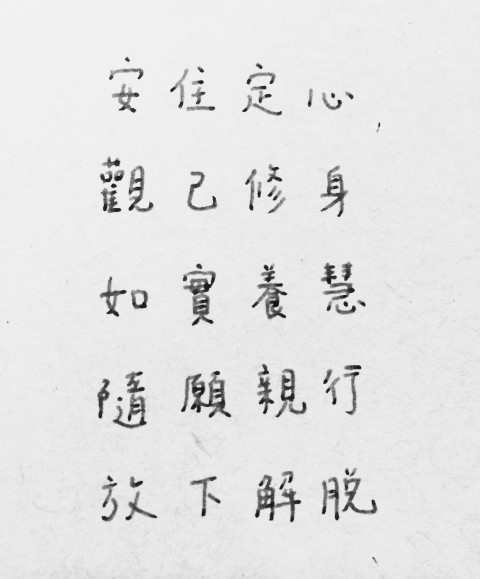 安住定心
觀己修身
如實養慧
隨願親行
放下解脫